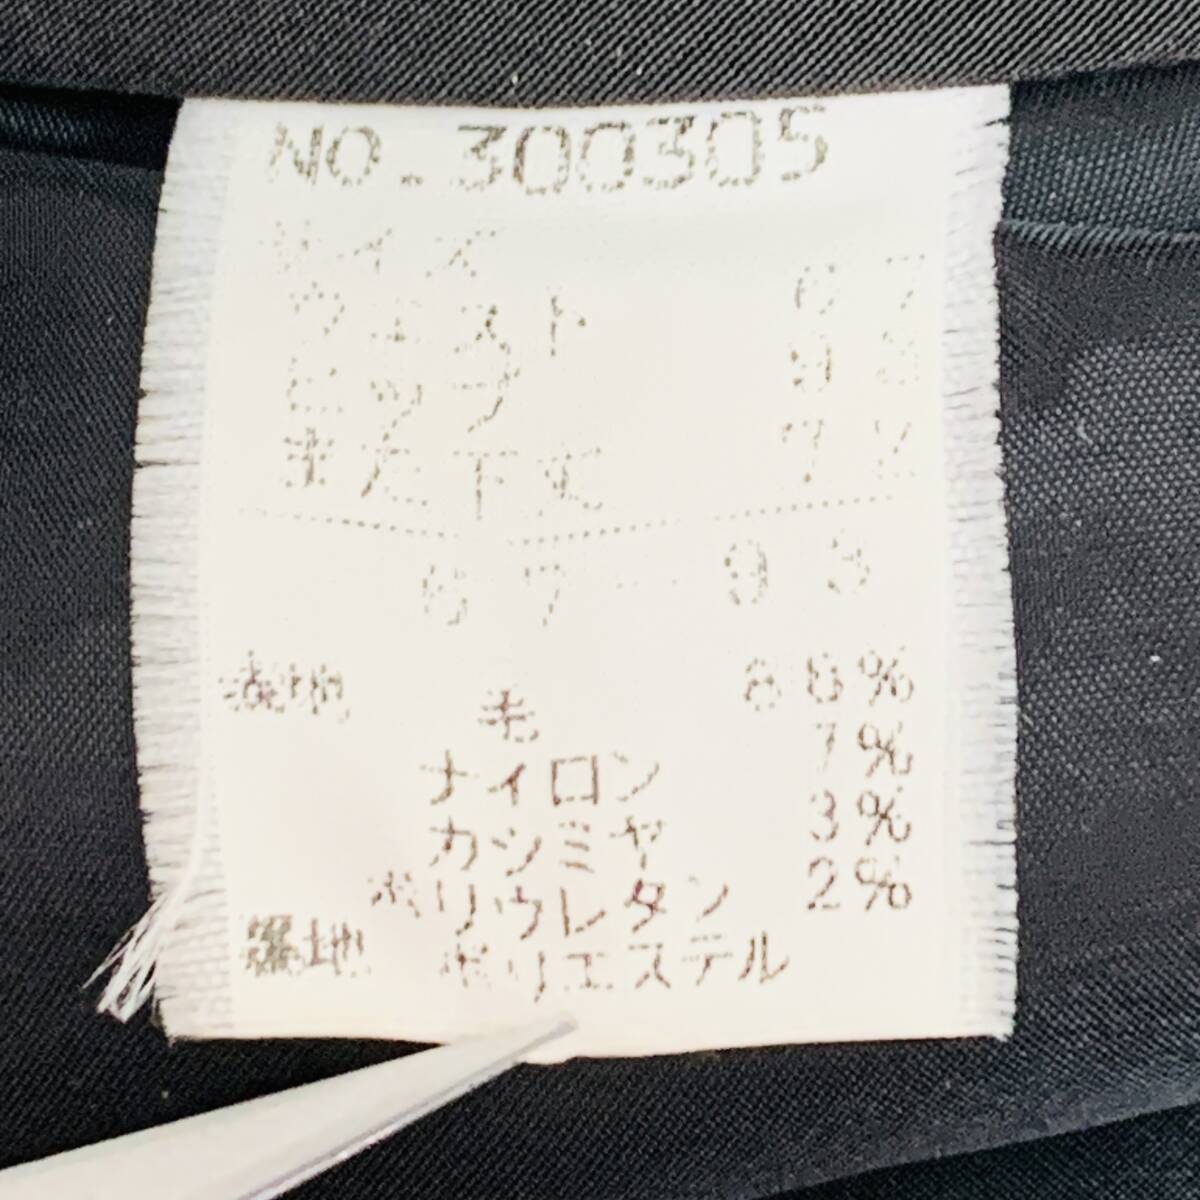 NO.300305
サイズ
ウェスト 67
ヒップ 93
また下丈 72
67-93
表地 毛 88%
ナイロン 7%
カシミヤ 3%
ポリウレタン 2%
裏地 ポリエステル